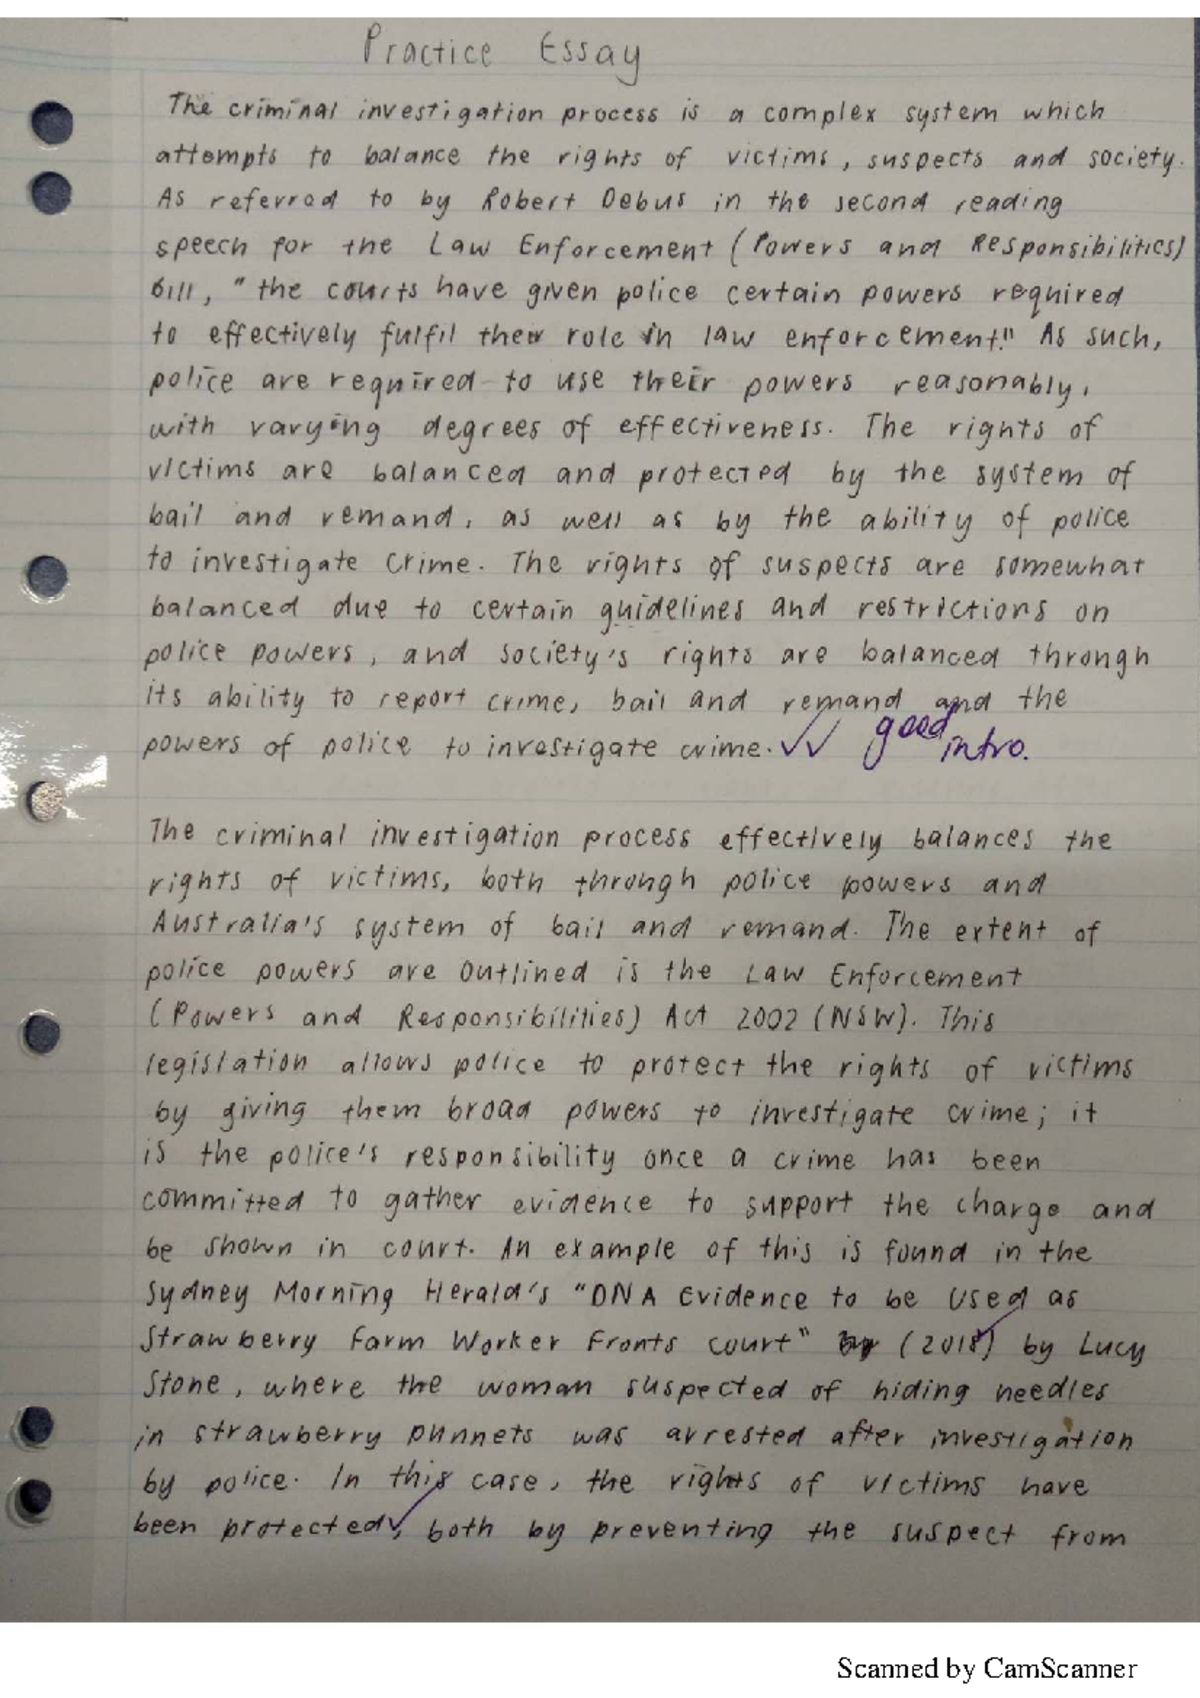 Practice Essay
The criminal investigation process is a complex system which
attempts to balance the rights of victims, suspects and society.
As referred to by Robert Debus in the second reading
speech for the Law Enforcement (Powers and Responsibilities)
Bill, "the courts have given police certain powers required
to effectively fulfil their role in law enforcement." As such,
police are required to use their powers reasonably,
with varying degrees of effectiveness. The rights of
victims are balanced and protected by the system of
bail and remand, as well as by the ability of police
to investigate crime. The rights of suspects are somewhat
balanced due to certain guidelines and restrictions on
police powers, and society's rights are balanced through
its ability to report crime, bail and remand and the
powers of police to investigate crime. ✓✓ good intro.
The criminal investigation process effectively balances the
rights of victims, both through police powers and
Australia's system of bail and remand. The extent of
police powers are outlined is the Law Enforcement
(Powers and Responsibilities) Act 2002 (NSW). This
legislation allows police to protect the rights of victims
by giving them broad powers to investigate crime; it
is the police's responsibility once a crime has been
committed to gather evidence to support the charge and
be shown in court. An example of this is found in the
Sydney Morning Herald's "DNA Evidence to be Used as
Strawberry Farm Worker Fronts Court" (2018) by Lucy
Stone, where the woman suspected of hiding needles
in strawberry punnets was arrested after investigation
by police. In this case, the rights of victims have
been protected, both by preventing the suspect from
Scanned by CamScanner